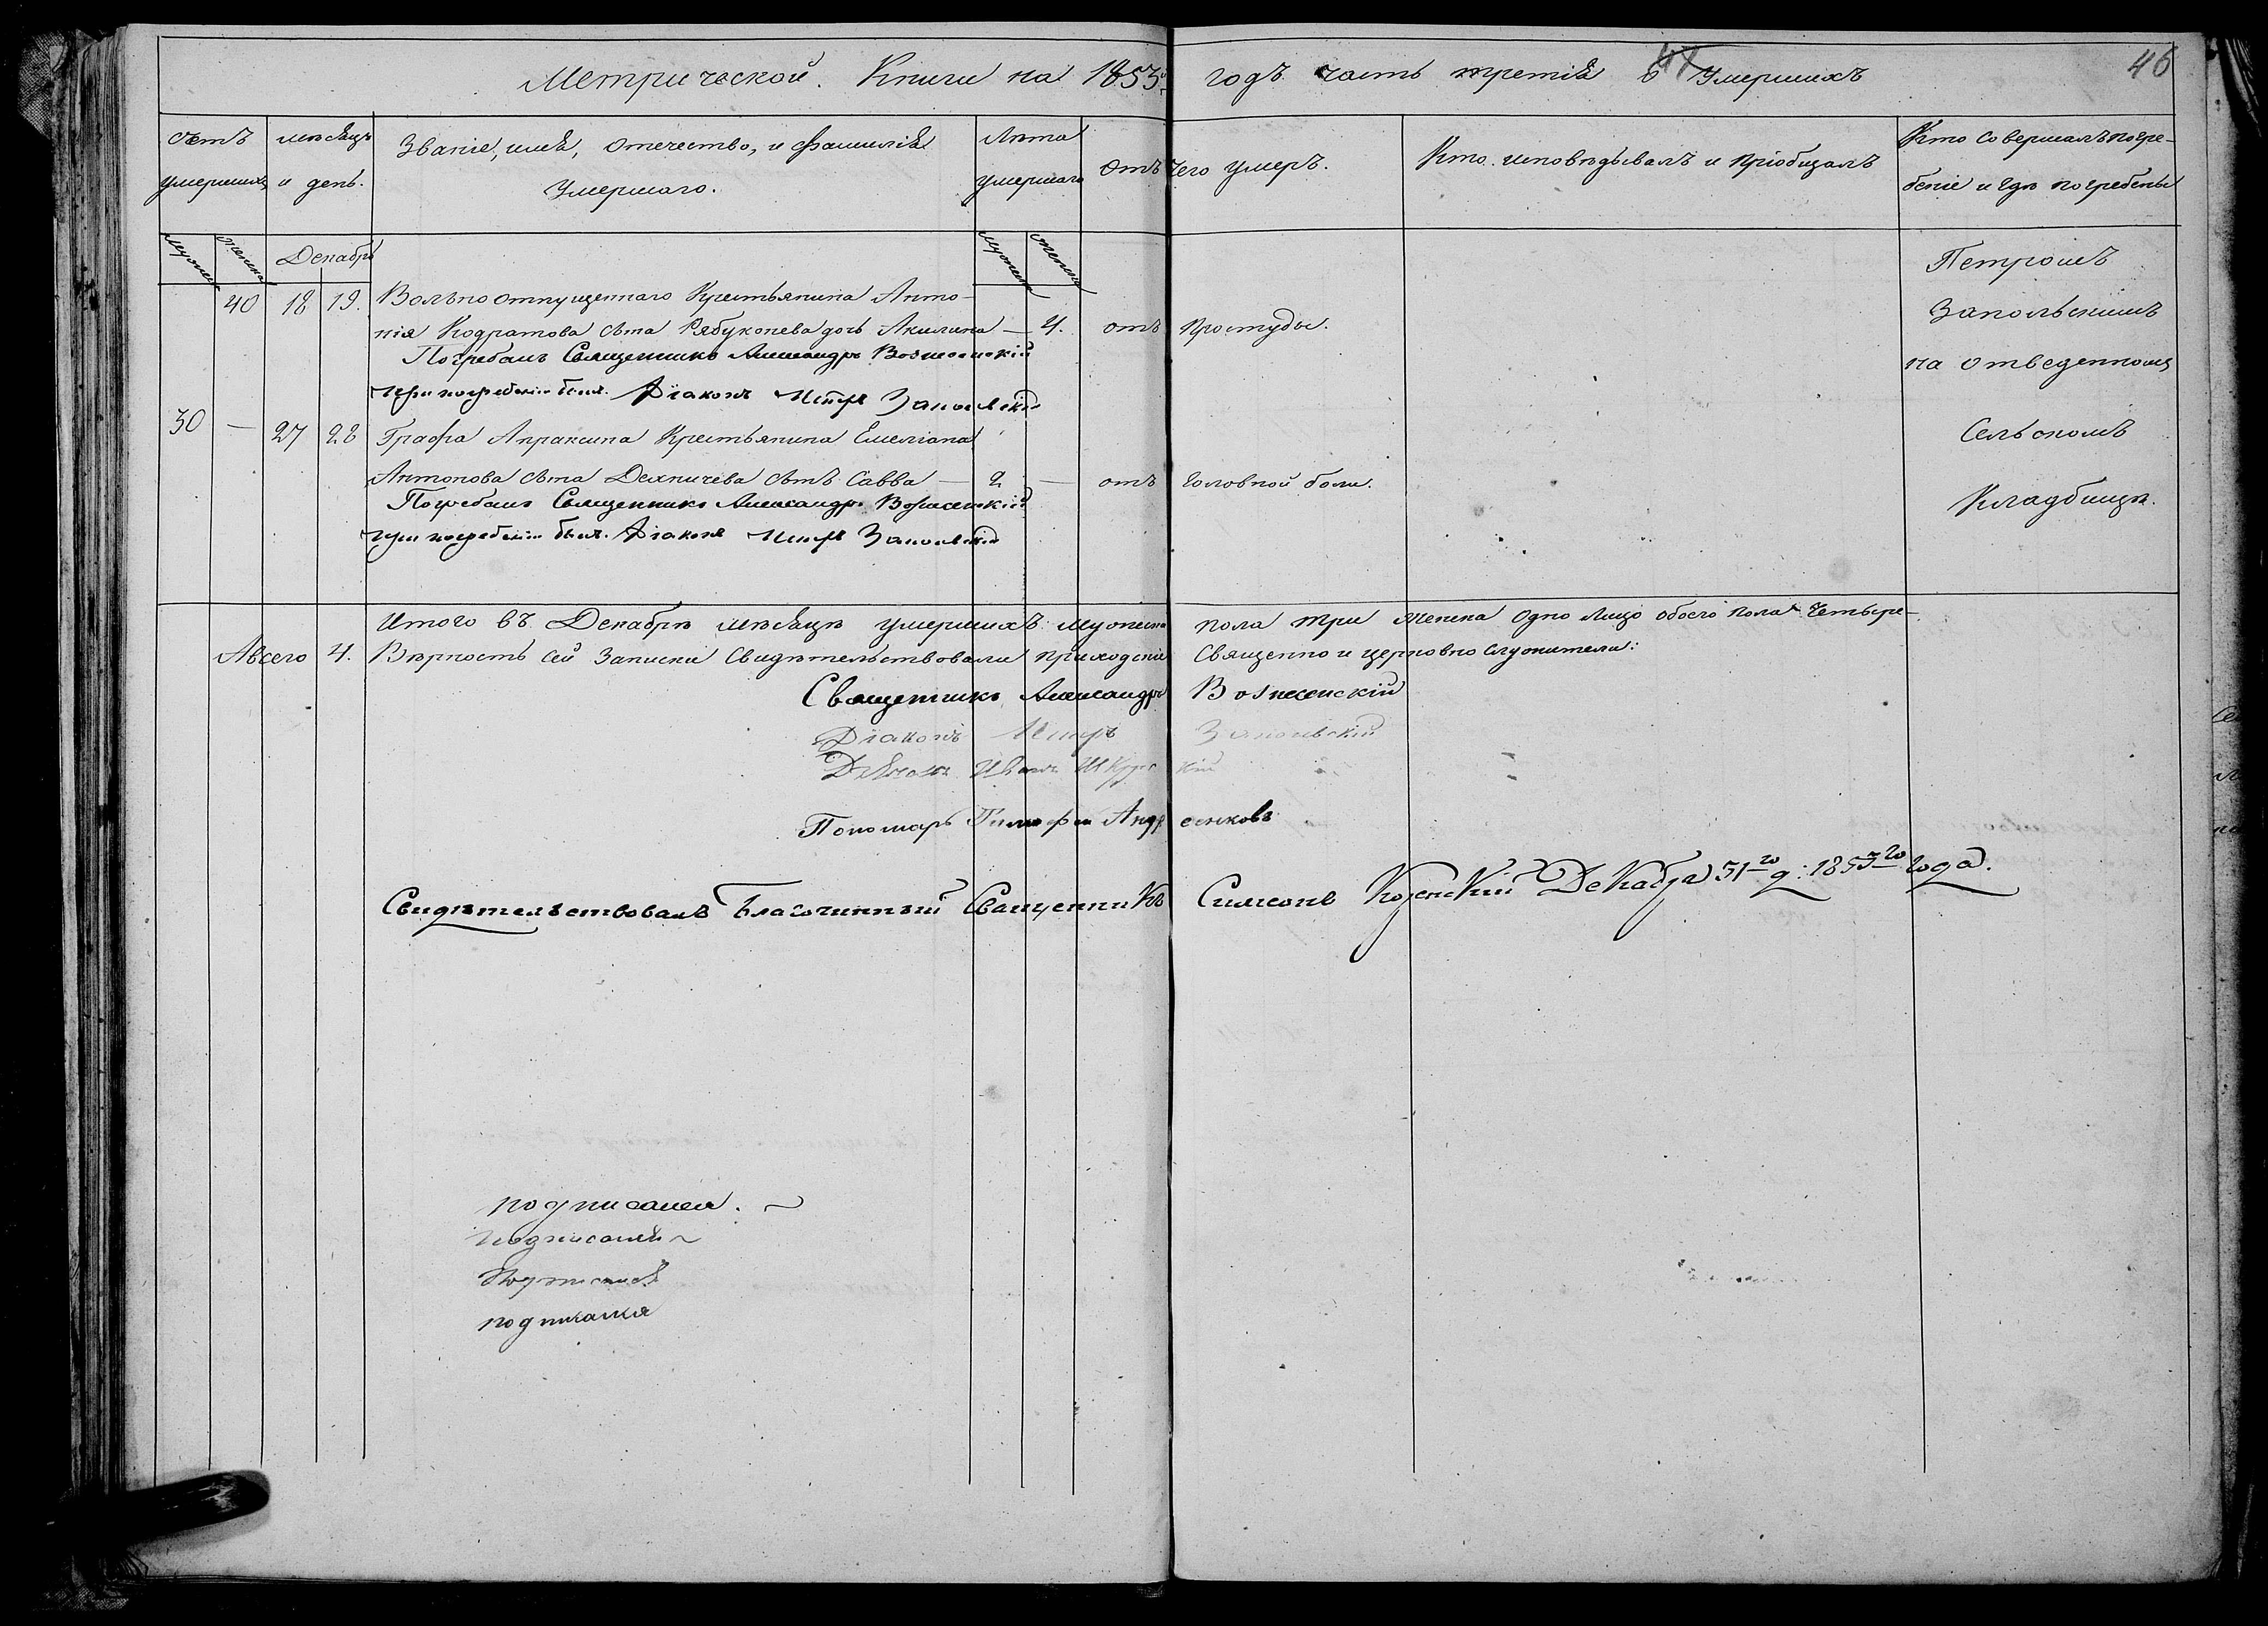 Метрической Книги на 1853й годъ часть третія о Умершихъ
47
46
Счетъ умершихъ
мѣсяцъ и день.
Званіе, имя, отечество, и фамилія Умершаго.
Лѣта умершаго
Отъ чего умеръ.
Кто исповѣдывалъ и пріобщалъ
Кто совершалъ погребеніе и гдѣ погребены
мужеска
женска
Декабрь
мужеска
женска
40 18 19. Вольно отпущеннаго Крестьянина Анто-
нія Кодратова сына Рябуконева дочь Акилина — 4. отъ простуды.
Погребалъ Священникъ Александръ Вознесенскій
при погребеніи былъ Діаконъ Петръ Запольскій
30 — 27 28 Графа Апраксина Крестьянина Емеліана
Антонова сына сынъ Савва — 2 — отъ головной боли.
Погребалъ Священникъ Александръ Вознесенскій
при погребеніи былъ Діаконъ Петръ Запольскій
Петромъ
Запольскимъ
на отведенномъ
Сельскомъ
Кладбищѣ.
Итого въ Декабрѣ мѣсяцѣ умершихъ мужеска пола три женска одно лицо обоего пола четыре
Авсего 4. Вѣрность сей записки свидѣтельствовали приходскіе священно и церковно служители:
Священникъ Александръ Вознесенскій
Діаконъ Петръ Запольскій
Дьячокъ Иванъ
Пономарь Тимофей Андреенковъ
Свидѣтельствовалъ Благочинный Священникъ Симеонъ Декабря 31го д: 1853го года.
подписалея.
подписалея
подписался
подписался